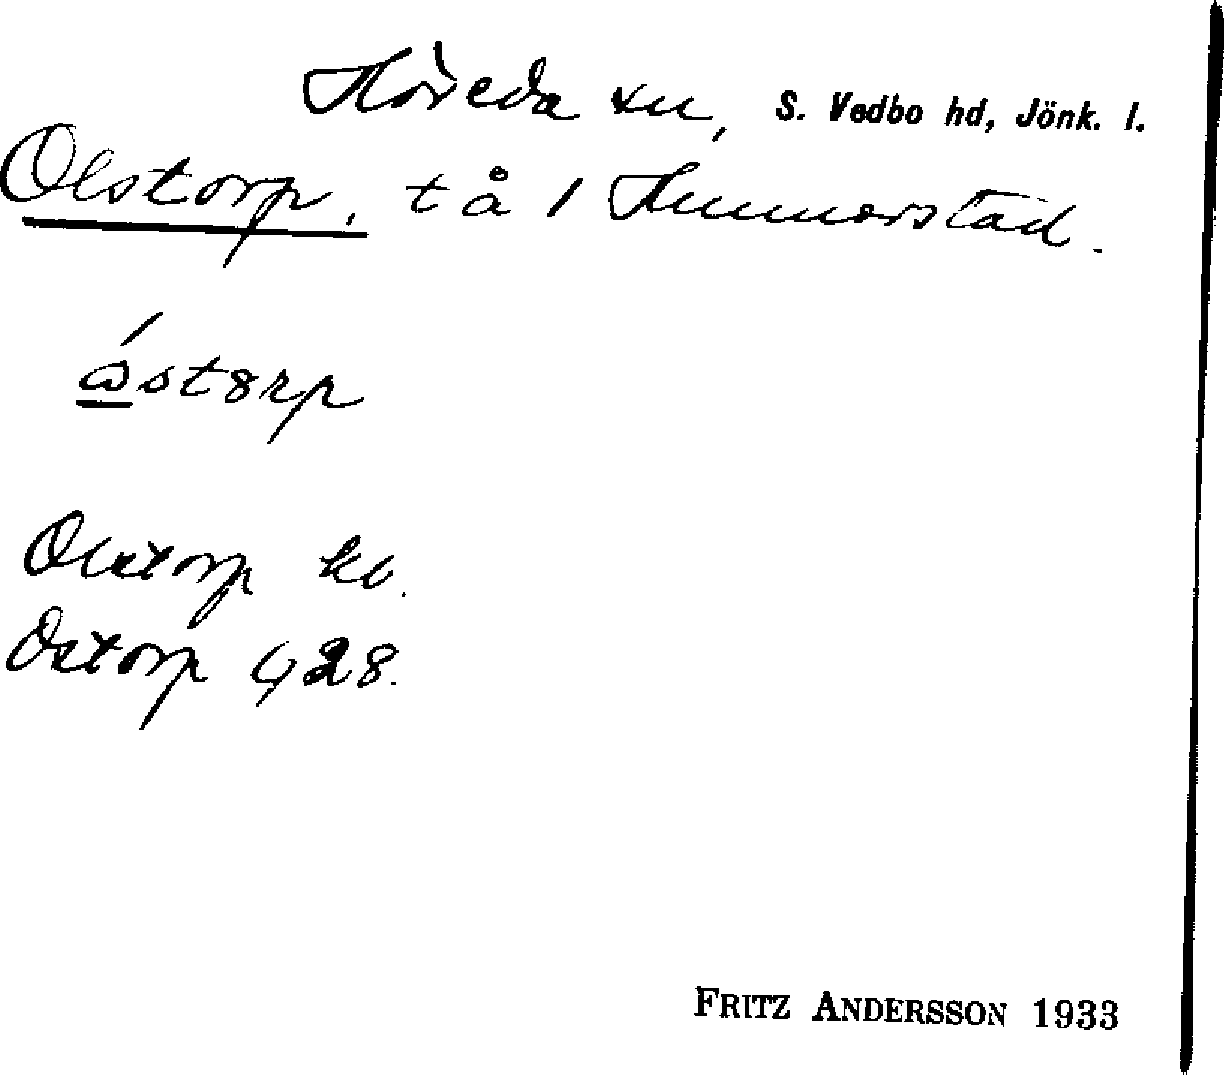 Höreda sn, S. Vedbo hd, Jönk. l.
Olstorp, t å 1 Hunnerstad.
ɷ́st8rp
Olstorp kb.
Ostorp G, 28.
FRITZ ANDERSSON 1933